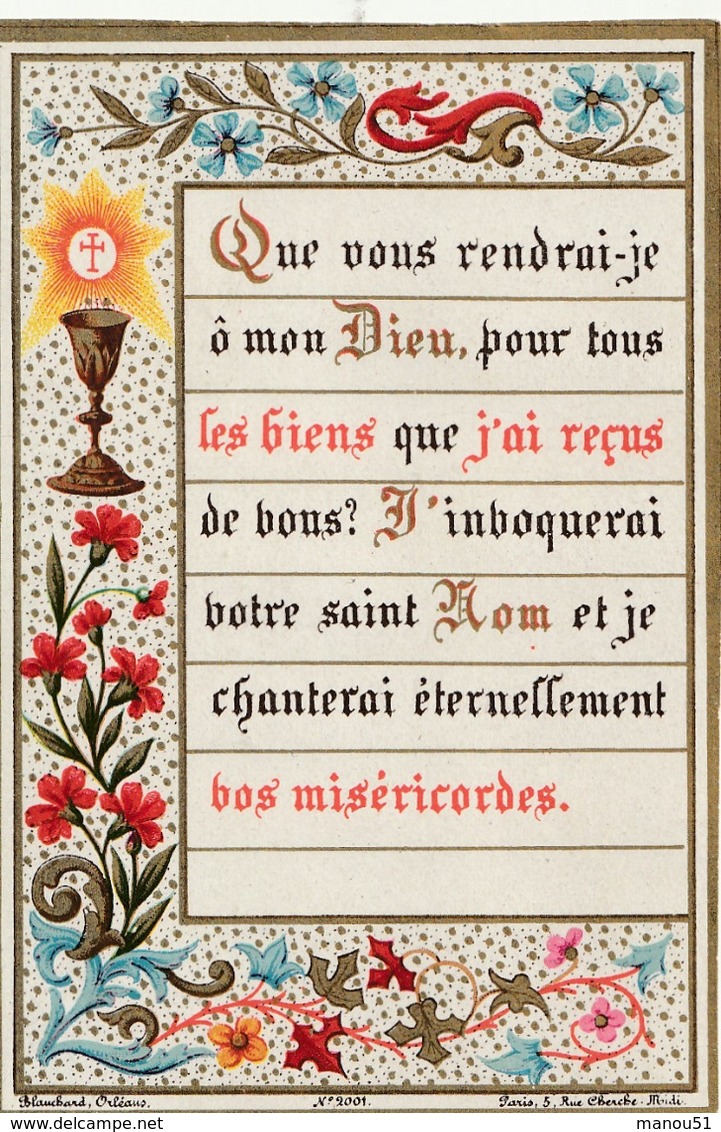 Que vous rendrai-je
ô mon Dieu, pour tous
les biens que j'ai reçus
de vous? J'invoquerai
votre saint Nom et je
chanterai éternellement
vos miséricordes.
Blanchard, Orléans. Nº 2001. Paris, 5, Rue Cherche-Midi.
manou51